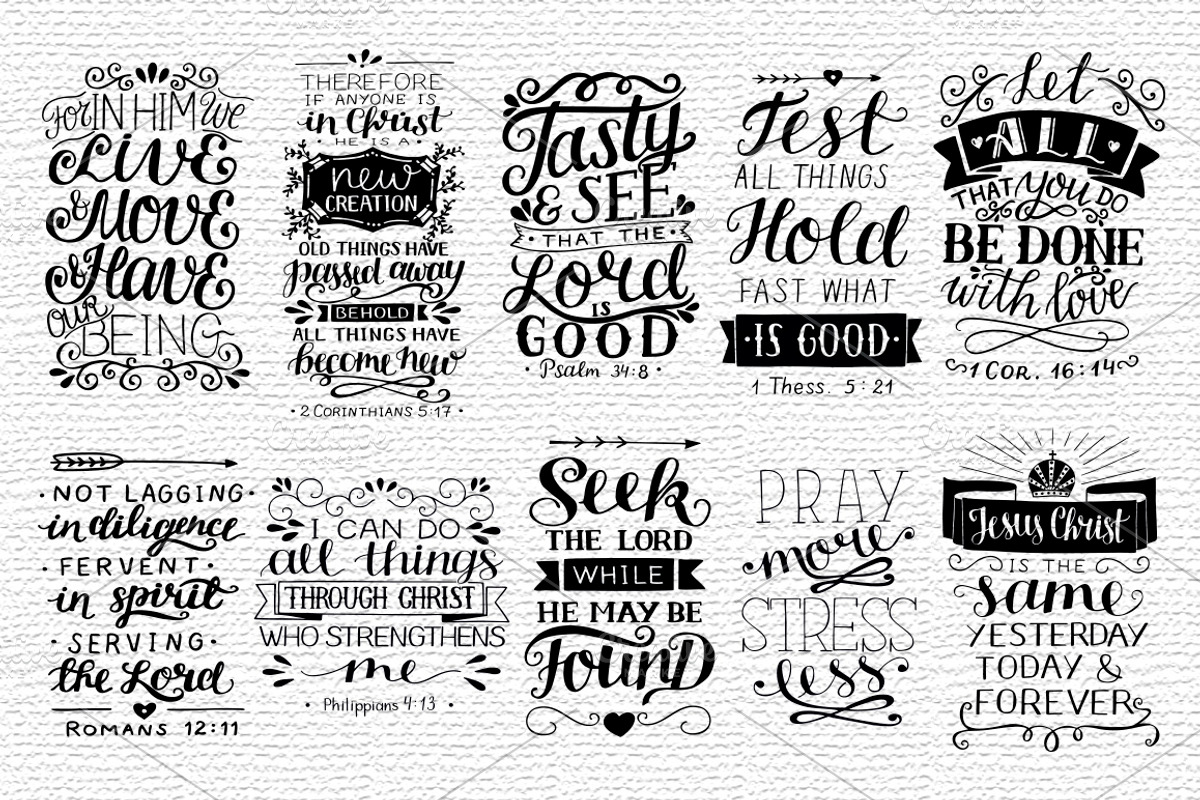 For IN HIM we
LIVE
& MOVE
& Have
our
BEING
THEREFORE
IF ANYONE IS
in Christ
HE IS A
new
CREATION
OLD THINGS HAVE
passed away
BEHOLD
ALL THINGS HAVE
become new
· 2 CORINTHIANS 5:17 ·
Tasty
& SEE
· THAT THE ·
Lord
IS
GOOD
· Psalm 34:8 ·
Test
ALL THINGS
Hold
FAST WHAT
·IS GOOD·
1 Thess. 5:21
Let
ALL
THAT you DO
BE DONE
with love
1 COR. 16:14
·NOT LAGGING·
in diligence
·FERVENT·
in spirit
·SERVING·
the Lord
ROMANS 12:11
I CAN DO
all things
THROUGH CHRIST
WHO STRENGTHENS
me
· Philippians 4:13 ·
Seek
THE LORD
WHILE
HE MAY BE
Found
PRAY
more
STRESS
less
Jesus Christ
IS THE
same
YESTERDAY
TODAY &
FOREVER